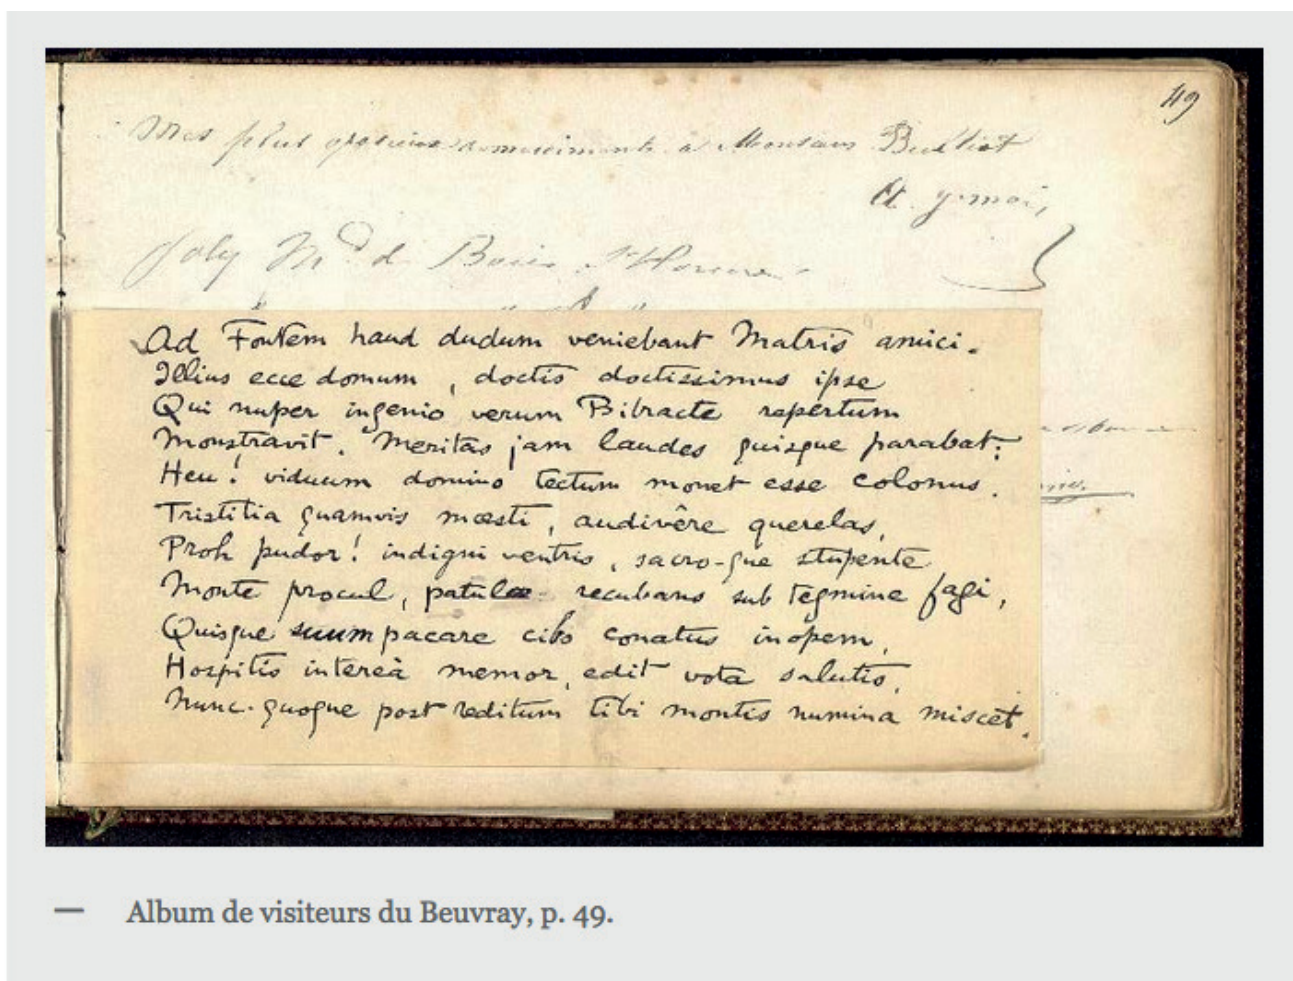 49
Mes plus gracieux remerciments a Monsieur Bulliot
Joly Md de Bois St Honoré
Ad Fontem haud dudum veniebant Matris amici.
Illius ecce domum, doctis doctissimus ipse
Qui nuper ingenio verum Bibracte repertum
Monstravit. Meritas jam laudes quisque parabat:
Heu! viduum domino tectum monet esse colonus.
Tristitia quamvis mœsti, audivêre querelas,
Proh pudor! indigni ventris, sacro-que stupente
Monte procul, patulæ recubans sub tegmine fagi,
Quisque suum pacare cibo conatus inopem,
Hospitis intereà memor, edit vota salutis,
Nunc quoque post reditum tibi montis numina miscet.
— Album de visiteurs du Beuvray, p. 49.